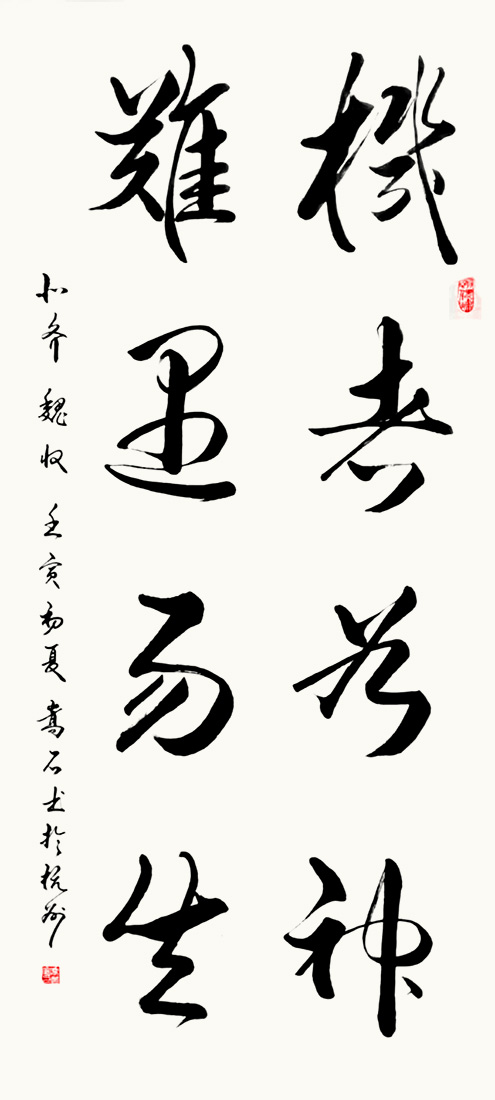 機者如神
難遇易失
北齐魏收 壬寅初夏 嵩石书於杭州